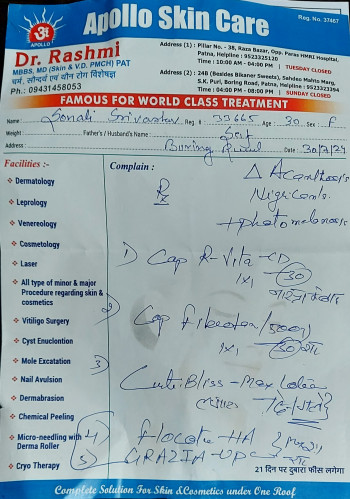 Apollo Skin Care
Reg. No. 37467
APOLLO
Dr. Rashmi
MBBS, MD (Skin & V.D, PMCH) PAT
चर्म, सौन्दर्य एवं यौन रोग विशेषज्ञ
Ph.: 09431458053
Address (1) : Pillar No. - 38, Raza Bazar, Opp. Paras HMRI Hospital,
Patna, Helpline : 9523325120
Time : 10:00 AM - 04:00 PM TUESDAY CLOSED
Address (2) : 24B (Besides Bikaner Sweets), Sahdeo Mahto Marg,
S.K. Puri, Boring Road, Patna, Helpline : 9523323394
Time : 04:00 PM - 08:00 PM SUNDAY CLOSED
FAMOUS FOR WORLD CLASS TREATMENT
Name : Sonali Srivastav Reg. # 33665 Age : 30 Sex : F
Weight : Father's / Husband's Name : Self
Address : Boring Road Date : 30/7/24
Facilities :-
Complain :
Dermatology
Leprology
Venereology
Cosmetology
Laser
All type of minor & major
Procedure regarding skin &
cosmetics
Vitiligo Surgery
Cyst Enuclontion
Mole Excatation
Nail Avulsion
Dermabrasion
Chemical Peeling
Micro-needling with
Derma Roller
Cryo Therapy
Rx
Δ Acanthosis
Nigricans
+ photomelanosis
1) Cap R-Vita-CD
1x1 30
2) Cap
1x1 30
3) CuteBliss-Max Lotion
4) Flocote-HA
5) GRAZIA-UP
21 दिन पर दुबारा फीस लगेगा
Complete Solution For Skin & Cosmetics under One Roof